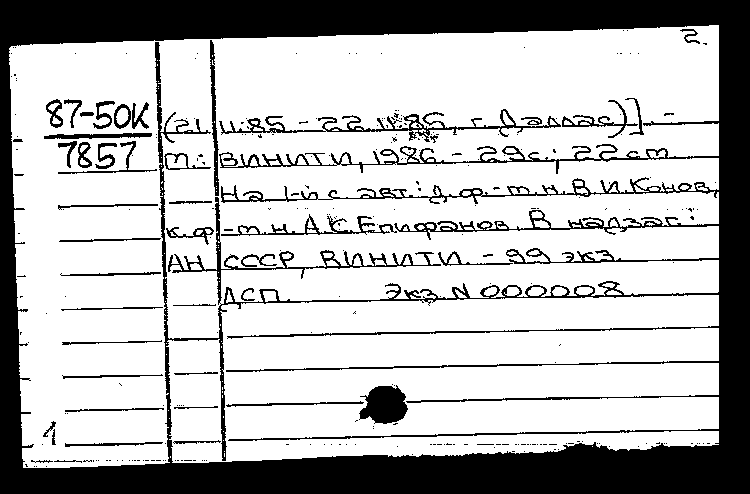 2.
87-50К
7857
(21.11.85. - 22.11.85, г. Даллас)]. -
М.: ВИНИТИ, 1986. - 29 с.; 22 см.
На 1-й с. авт.: д.ф.-м.н. В.И. Конов,
к.ф.-м.н. А.С. Епифанов. В надзаг.:
АН СССР, ВИНИТИ. - 99 экз.
ДСП. Экз. N 000008
1